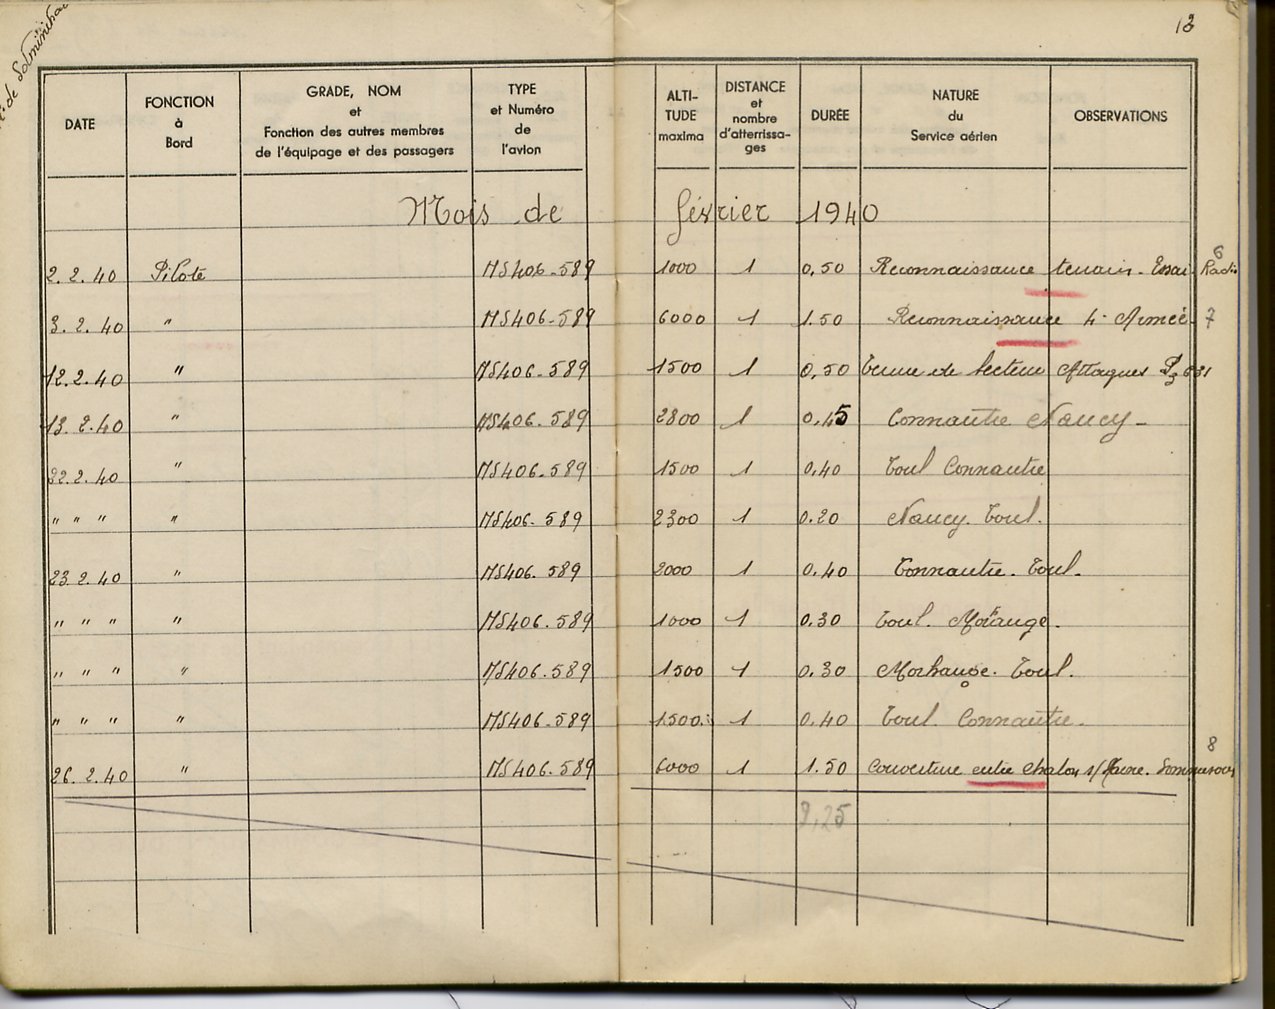 13
de Solminihac
DATE
FONCTION
à
Bord
GRADE, NOM
et
Fonction des autres membres
de l'équipage et des passagers
TYPE
et Numéro
de
l'avion
ALTI-
TUDE
maxima
DISTANCE
et
nombre
d'atterrissa-
ges
DURÉE
NATURE
du
Service aérien
OBSERVATIONS
Mois de février 1940
2.2.40 Pilote MS406-589 1000 1 0,50 Reconnaissance terrain - Essai Radio 6
3.2.40 " MS406-589 6000 1 1.50 Reconnaissance 4e Armée 7
12.2.40 " MS406-589 1500 1 0,50 Tenue de Secteur Attaques
13.2.40 " MS406-589 2800 1 0,45 Connautre Nancy -
22.2.40 " MS406-589 1500 1 0,40 Toul Connautre
" " " " MS406-589 2300 1 0.20 Nancy. Toul.
23.2.40 " MS406-589 2000 1 0,40 Connautre. Toul.
" " " " MS406-589 1000 1 0.30 Toul. Morange.
" " " " MS406-589 1500 1 0.30 Morhange. Toul.
" " " " MS406-589 1500 1 0,40 Toul Connautre.
26.2.40 " MS406-589 6000 1 1.50 Couverture entre Chalon s/Marne. Sommesous 8
9,25